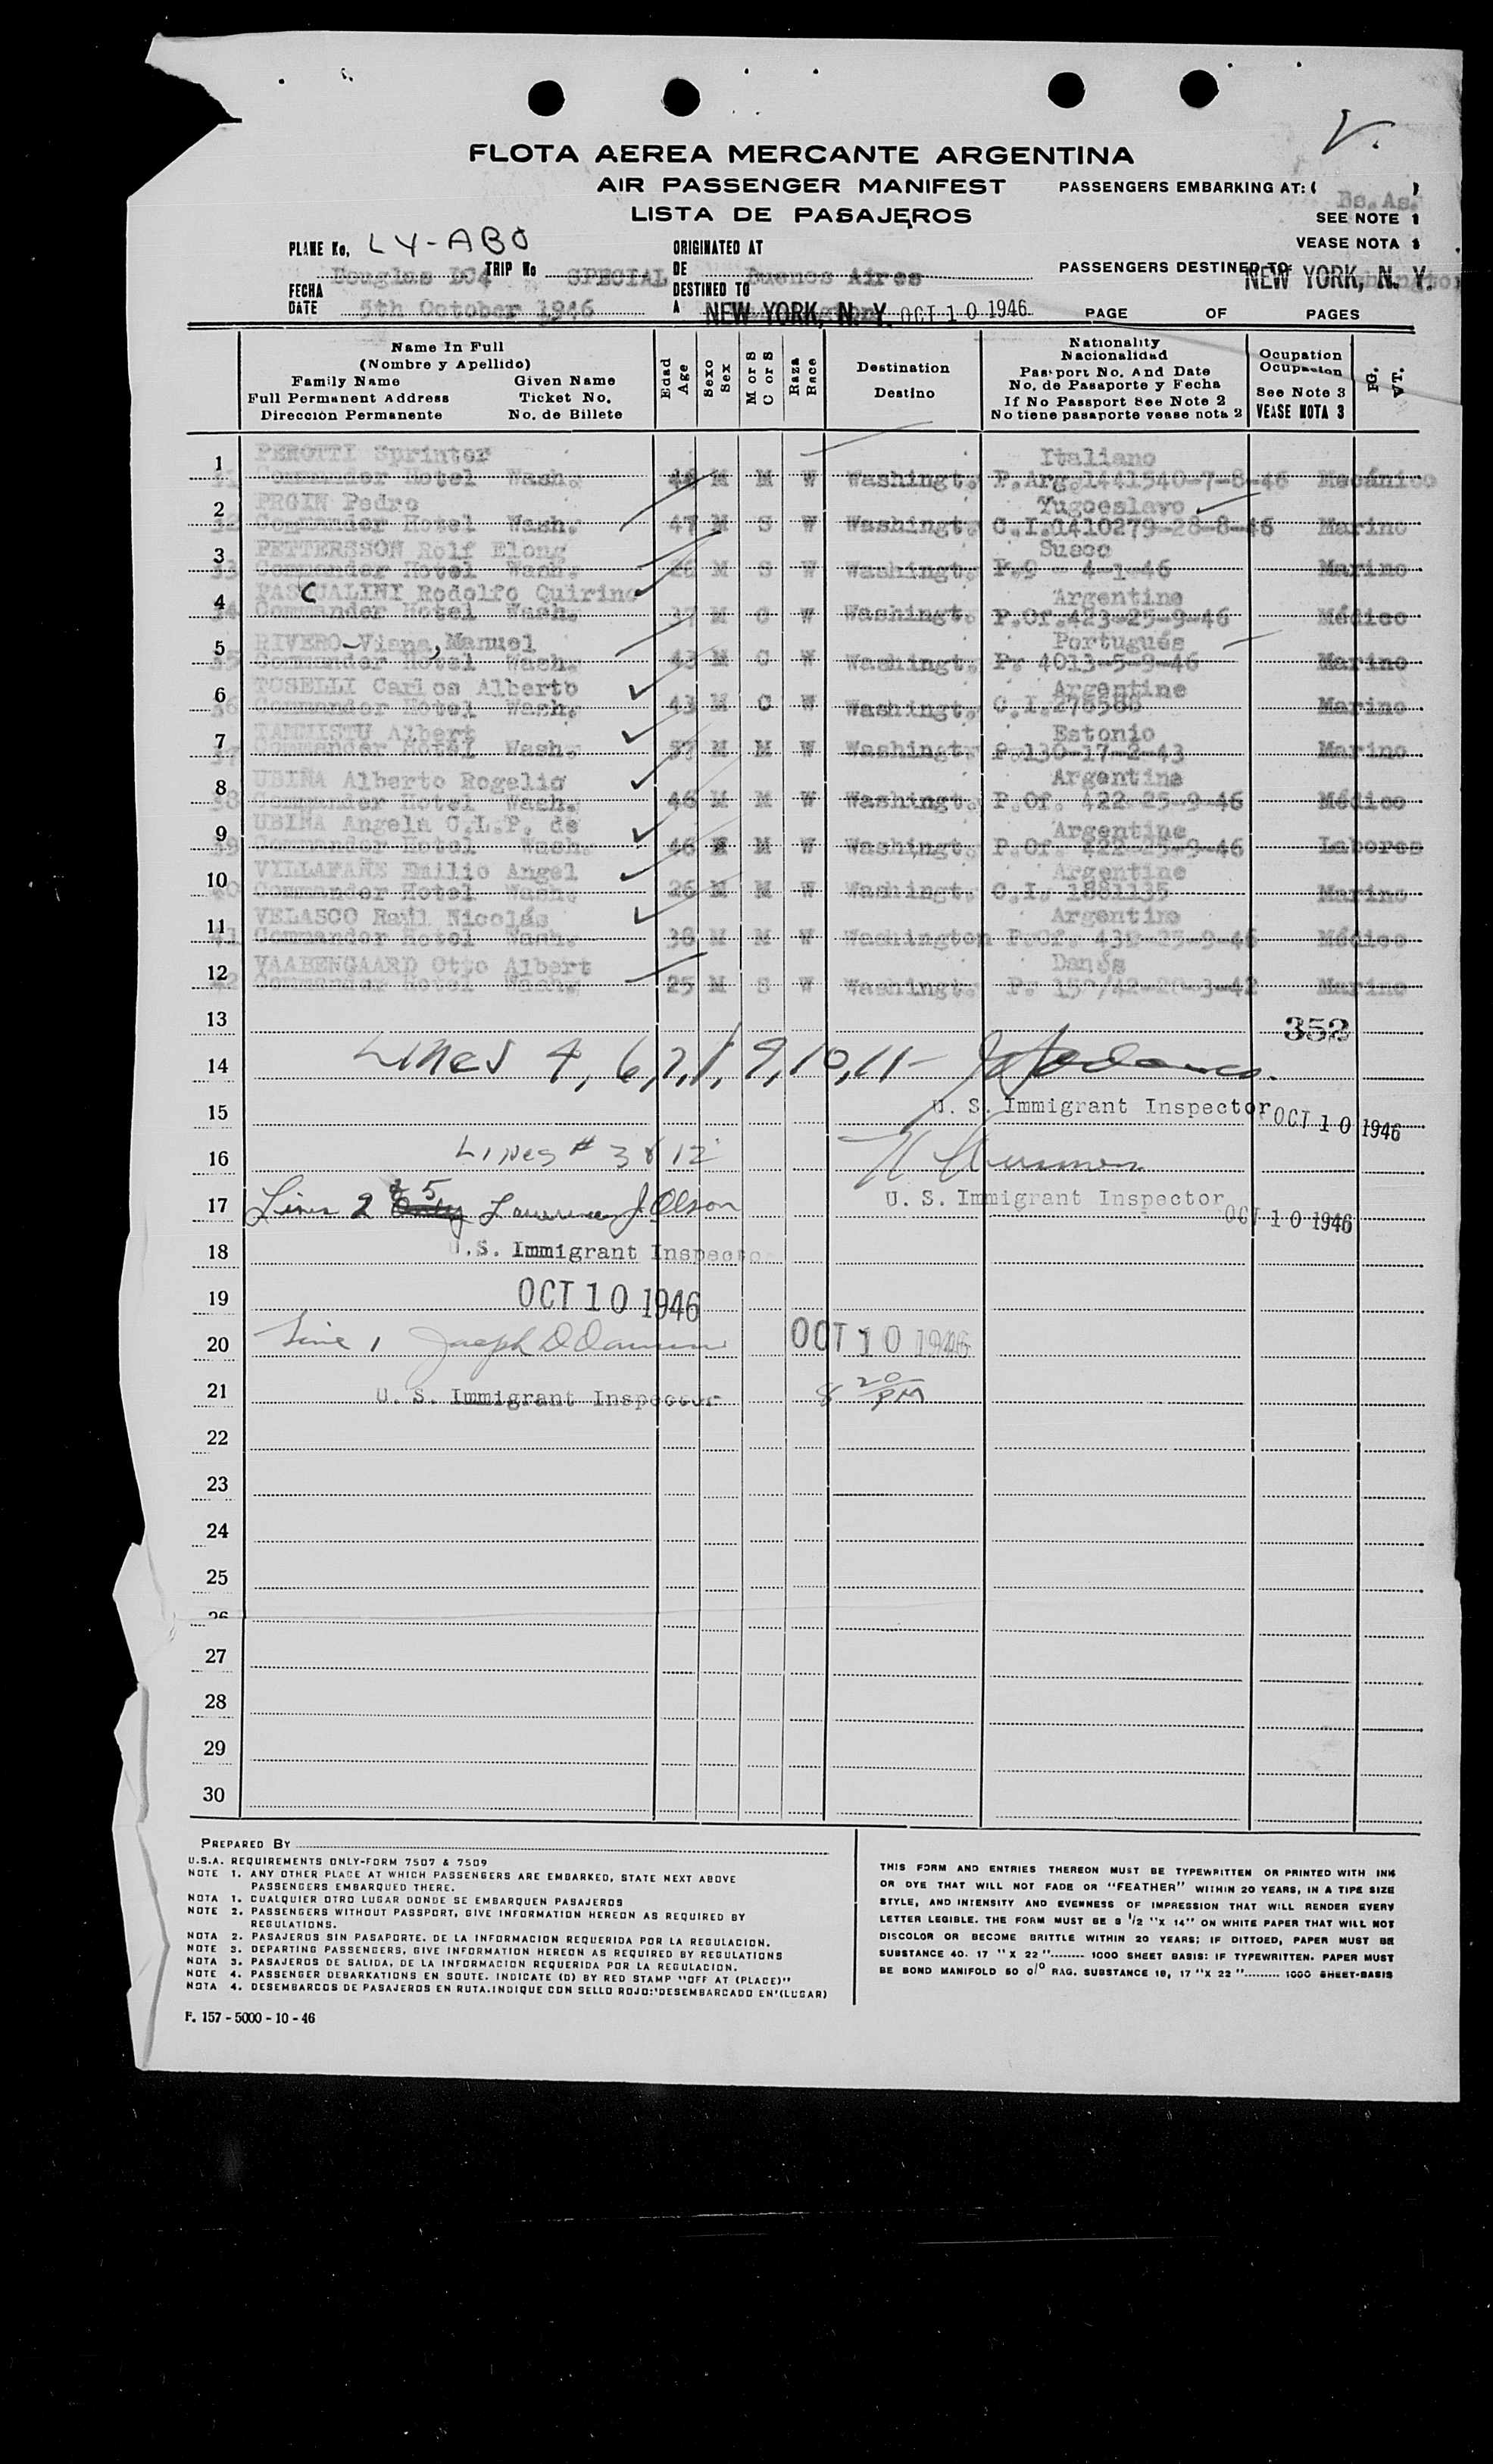 V.
FLOTA AEREA MERCANTE ARGENTINA
AIR PASSENGER MANIFEST
LISTA DE PASAJEROS
PASSENGERS EMBARKING AT: ( Bs.As. )
SEE NOTE 1
VEASE NOTA 1
PLANE No, LV-ABO
Douglas DC4 TRIP No SPECIAL
ORIGINATED AT
DE Buenos Aires
PASSENGERS DESTINED TO: NEW YORK, N. Y.
FECHA
DATE 5th October 1946
DESTINED TO
A NEW YORK, N. Y. OCT 10 1946
PAGE OF PAGES
Name In Full
(Nombre y Apellido)
Family Name Given Name
Full Permanent Address Ticket No.
Dirección Permanente No. de Billete
Edad Age
Sexo Sex
M or S
C or S
Raza Race
Destination
Destino
Nationality
Nacionalidad
Passport No. And Date
No. de Pasaporte y Fecha
If No Passport See Note 2
No tiene pasaporte vease nota 2
Ocupation
Ocupasion
See Note 3
VEASE NOTA 3
PG.
VT.
1 PEROTTI Sprinter Italiano
31 Commander Hotel Wash. 48 M M W Washingt. P.Arg.1441540-7-8-46 Mecánico
2 PRGIN Pedro Yugoeslavo
32 Commander Hotel Wash. 47 M S W Washingt. C.I.1410279-28-8-46 Marino
3 PETTERSSON Rolf Elong Sueco
33 Commander Hotel Wash. 26 M S W Washingt. P.9 - 4-1-46 Marino
4 PASCUALINI Rodolfo Quirino Argentino
34 Commander Hotel Wash. 37 M C W Washingt. P.Of.423-25-9-46 Médico
5 RIVERO-Viana, Manuel Portugués
35 Commander Hotel Wash. 43 M C W Washingt. P. 4013-5-9-46 Marino
6 TOSELLI Carlos Alberto Argentino
36 Commander Hotel Wash. 43 M C W Washingt. C.I.276588 Marino
7 TAMMISTU Albert Estonio
37 Commander Hotel Wash. 57 M M W Washingt. P.130-17-2-43 Marino
8 UBIÑA Alberto Rogelio Argentino
38 Commander Hotel Wash. 46 M M W Washingt. P.Of. 422-25-9-46 Médico
9 UBIÑA Angela C.L.P. de Argentine
39 Commander Hotel Wash. 46 M W Washingt. P.Of. 422-25-9-46 Labores
10 VILLAFAÑE Emilio Angel Argentine
40 Commander Hotel Wash. 26 M M W Washingt. C.I. 1881135 Marino
11 VELASCO Raúl Nicolás Argentino
41 Commander Hotel Wash. 38 M M W Washington P.Of. 25-9-46 Médico
12 VAABENGAARD Otto Albert Danés
42 Commander Hotel Wash. 25 M S W Washingt. P. 150/42-20-3-42 Marino
13 352
14 Lines 4, 6, 7, 8, 9, 10, 11-
15 U. S. Immigrant Inspector OCT 10 1946
16 Lines # 3 & 12
17 Lines 2 & 5 Only Lawrence J. Olson U. S. Immigrant Inspector OCT 10 1946
18 U.S. Immigrant Inspector
19 OCT 10 1946
20 Line 1 Joseph D OCT 10 1946
21 U. S. Immigrant Inspector 8 20 PM
22
23
24
25
26
27
28
29
30
PREPARED BY
U.S.A. REQUIREMENTS ONLY-FORM 7507 & 7509
NOTE 1. ANY OTHER PLACE AT WHICH PASSENGERS ARE EMBARKED, STATE NEXT ABOVE
PASSENGERS EMBARQUED THERE.
NOTA 1. CUALQUIER OTRO LUGAR DONDE SE EMBARQUEN PASAJEROS
NOTE 2. PASSENGERS WITHOUT PASSPORT, GIVE INFORMATION HEREON AS REQUIRED BY
REGULATIONS.
NOTA 2. PASAJEROS SIN PASAPORTE. DE LA INFORMACION REQUERIDA POR LA REGULACION.
NOTE 3. DEPARTING PASSENGERS, GIVE INFORMATION HEREON AS REQUIRED BY REGULATIONS
NOTA 3. PASAJEROS DE SALIDA, DE LA INFORMACION REQUERIDA POR LA REGULACION.
NOTE 4. PASSENGER DEBARKATIONS EN SOUTE. INDICATE (D) BY RED STAMP "OFF AT (PLACE)"
NOTA 4. DESEMBARCOS DE PASAJEROS EN RUTA.INDIQUE CON SELLO ROJO:'DESEMBARCADO EN'(LUGAR)
THIS FORM AND ENTRIES THEREON MUST BE TYPEWRITTEN OR PRINTED WITH INK
OR DYE THAT WILL NOT FADE OR "FEATHER" WITHIN 20 YEARS, IN A TIPE SIZE
STYLE, AND INTENSITY AND EVENNESS OF IMPRESSION THAT WILL RENDER EVERY
LETTER LEGIBLE. THE FORM MUST BE 8 1/2 "X 14" ON WHITE PAPER THAT WILL NOT
DISCOLOR OR BECOME BRITTLE WITHIN 20 YEARS; IF DITTOED, PAPER MUST BE
SUBSTANCE 40. 17 " X 22 "........ 1000 SHEET BASIS: IF TYPEWRITTEN. PAPER MUST
BE BOND MANIFOLD 50 0/0 RAG. SUBSTANCE 18, 17 "X 22 "......... 1000 SHEET-BASIS
F. 157 - 5000 - 10 - 46